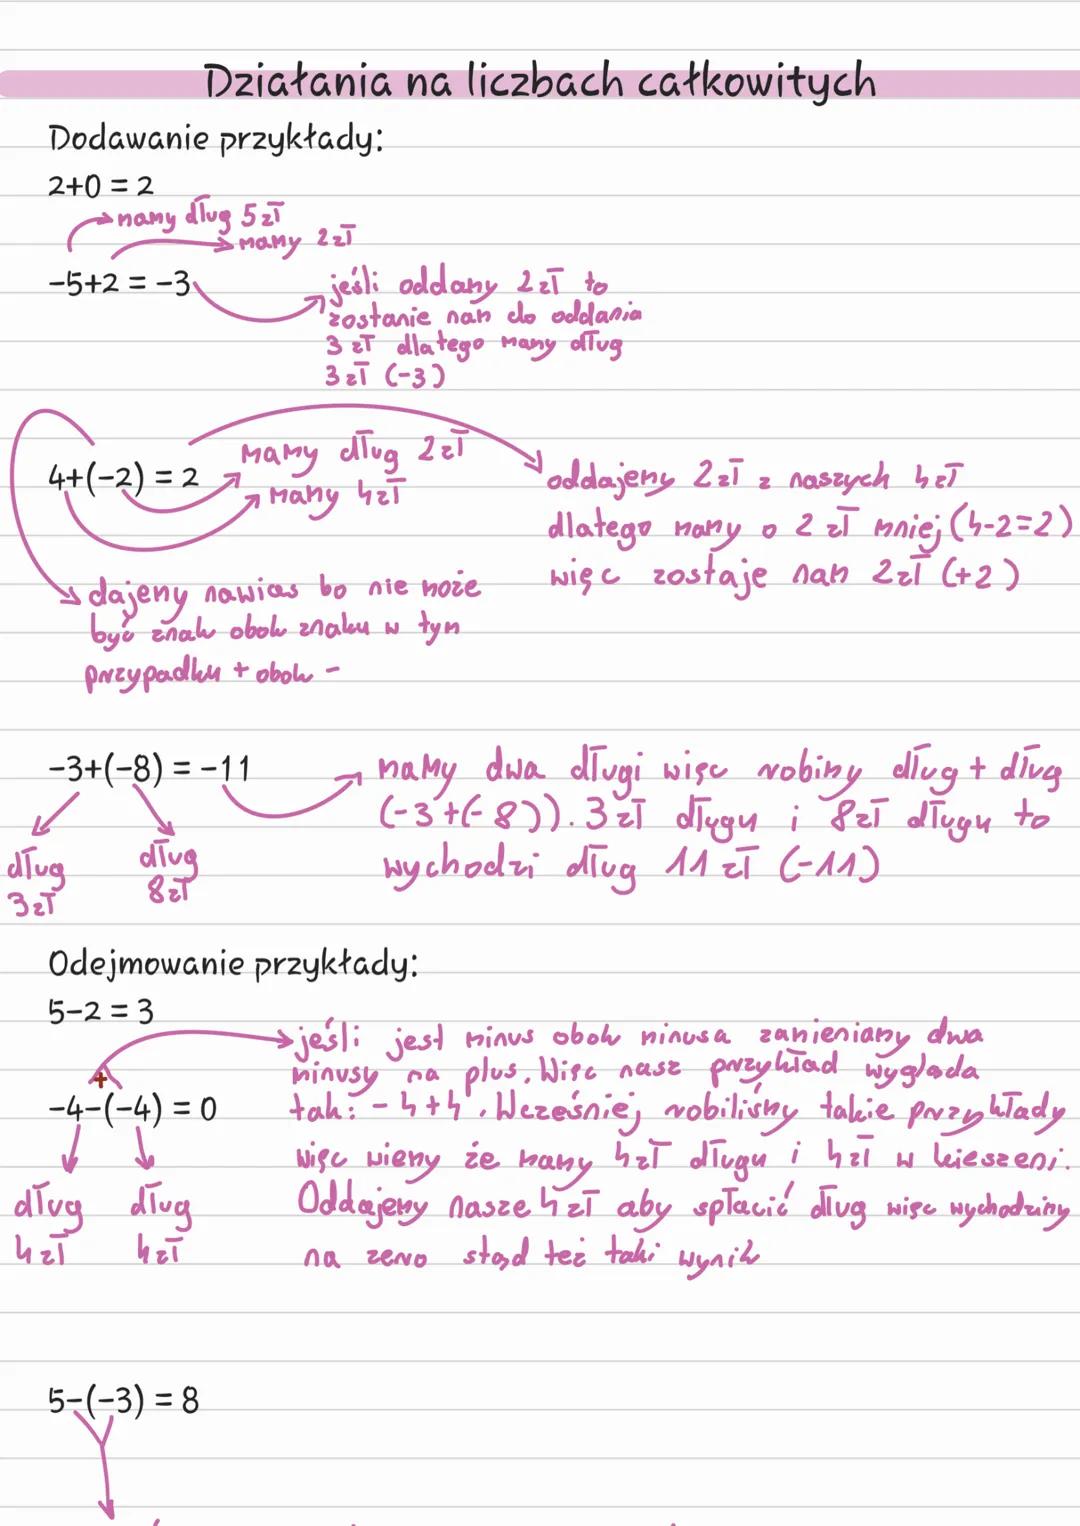 Działania na liczbach całkowitych
Dodawanie przykłady:
2+0 = 2
mamy dług 5 zł
mamy 2 zł
-5+2 = -3
jeśli oddamy 2 zł to
zostanie nam do oddania
3 zł dlatego mamy dług
3 zł (-3)
4+(-2) = 2
mamy dług 2 zł
mamy 4 zł
oddajemy 2 zł z naszych 4 zł
dlatego mamy o 2 zł mniej (4-2=2)
więc zostaje nam 2 zł (+2)
dajemy nawias bo nie może
być znak obok znaku w tym
przypadku + obok -
-3+(-8) = -11
dług
3 zł
dług
8 zł
mamy dwa długi więc robimy dług + dług
(-3+(-8)). 3 zł długu i 8 zł długu to
wychodzi dług 11 zł (-11)
Odejmowanie przykłady:
5-2 = 3
+
-4-(-4) = 0
dług
4 zł
dług
4 zł
jeśli jest minus obok minusa zamieniamy dwa
minusy na plus. Więc nasz przykład wygląda
tak: -4+4. Wcześniej robiliśmy takie przykłady
więc wiemy że mamy 4 zł długu i 4 zł w kieszeni.
Oddajemy nasze 4 zł aby spłacić dług więc wychodzimy
na zero stąd też taki wynik
5-(-3) = 8